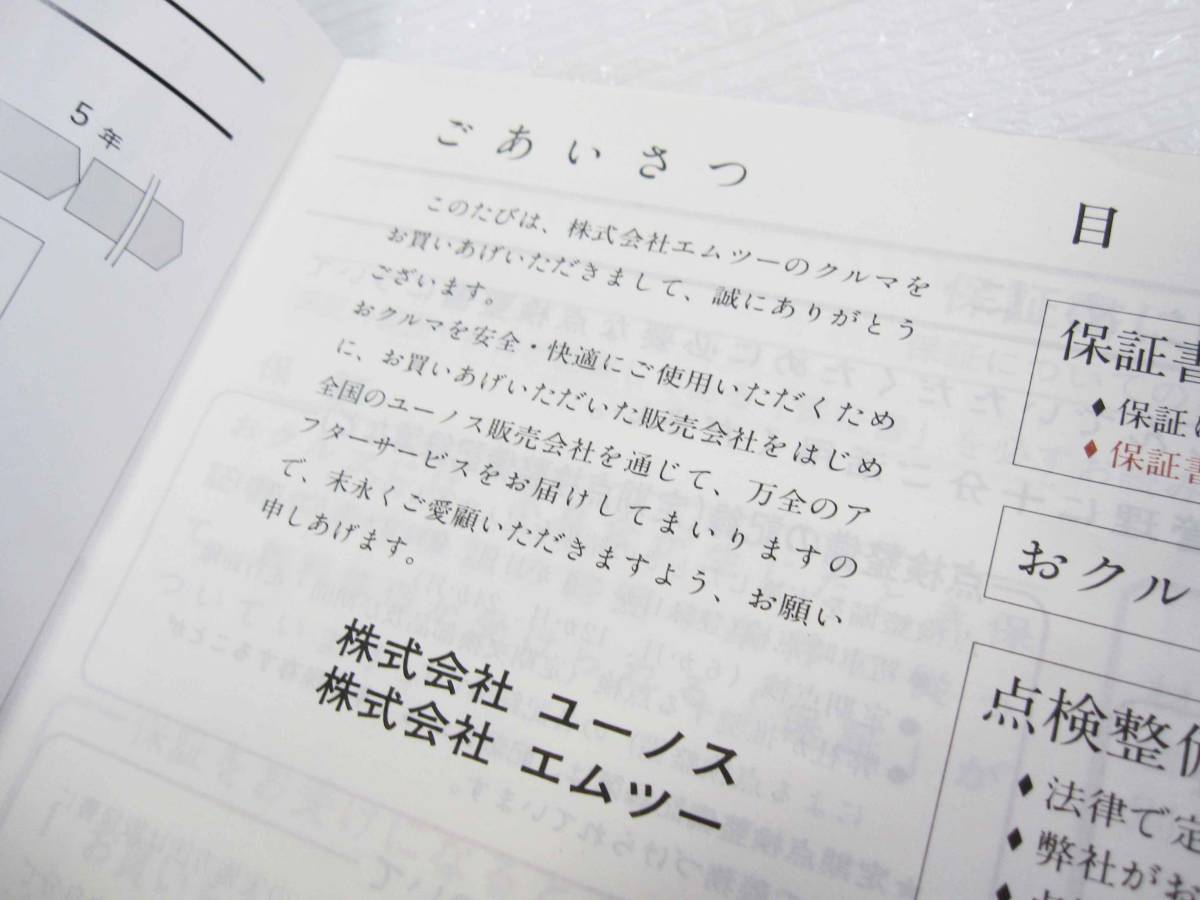 5年
ごあいさつ
このたびは、株式会社エムツーのクルマを
お買いあげいただきまして、誠にありがとう
ございます。
おクルマを安全・快適にご使用いただくため
に、お買いあげいただいた販売会社をはじめ
全国のユーノス販売会社を通じて、万全のア
フターサービスをお届けしてまいりますの
で、末永くご愛顧いただきますよう、お願い
申しあげます。
株式会社 ユーノス
株式会社 エムツー
目
保証書
◆保証
◆保証書
おクル
点検整備
◆法律で定
◆弊社がお